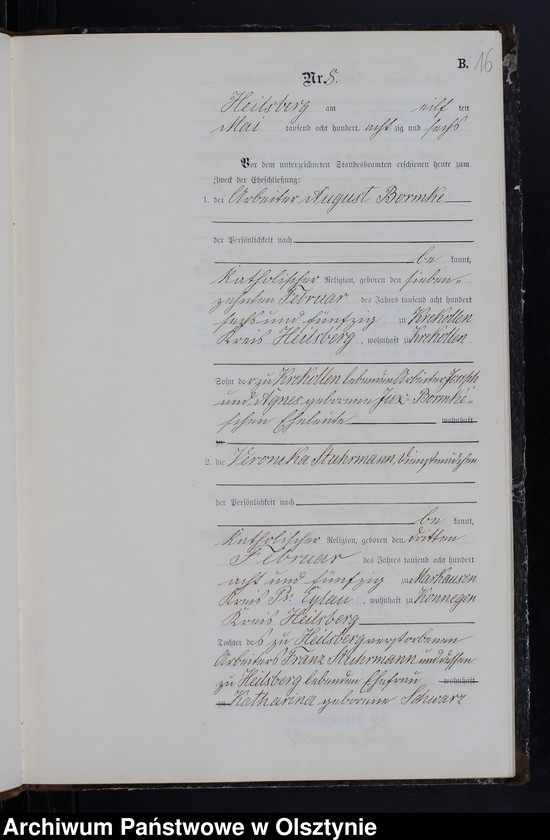 B. 16
Nr. 8.
Heilsberg am eilf ten
Mai tausend acht hundert acht zig und sechs
Vor dem unterzeichneten Standesbeamten erschienen heute zum
Zweck der Eheschließung:
1. der Arbeiter August Bormke
der Persönlichkeit nach
be kannt,
katholischer Religion, geboren den sieben-
zehnten Februar des Jahres tausend acht hundert
sechs und fünfzig zu Krekollen
Kreis Heilsberg, wohnhaft zu Krekollen
Sohn der zu Krekollen lebenden Arbeiter Joseph
und Agnes geborene Jux-Bormke-
schen Eheleute wohnhaft
zu
2. die Veronika Stuhrmann, Dienstmädchen
der Persönlichkeit nach
be kannt,
katholischer Religion, geboren den dritten
Februar des Jahres tausend acht hundert
acht und fünfzig zu Markausen
Kreis Pr. Eylau, wohnhaft zu Konnegen
Kreis Heilsberg
Tochter des zu Heilsberg verstorbenen
Arbeiters Franz Stuhrmann und dessen
zu Heilsberg lebenden Ehefrau wohnhaft
zu Katharina geborene Schwarz
Archiwum Państwowe w Olsztynie